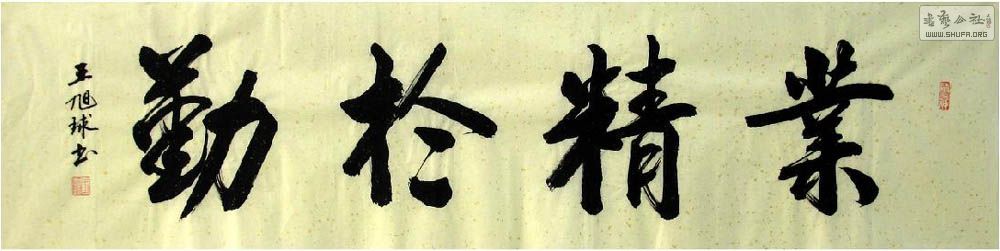 業精於勤
王旭球书
书艺公社
WWW.SHUFA.ORG